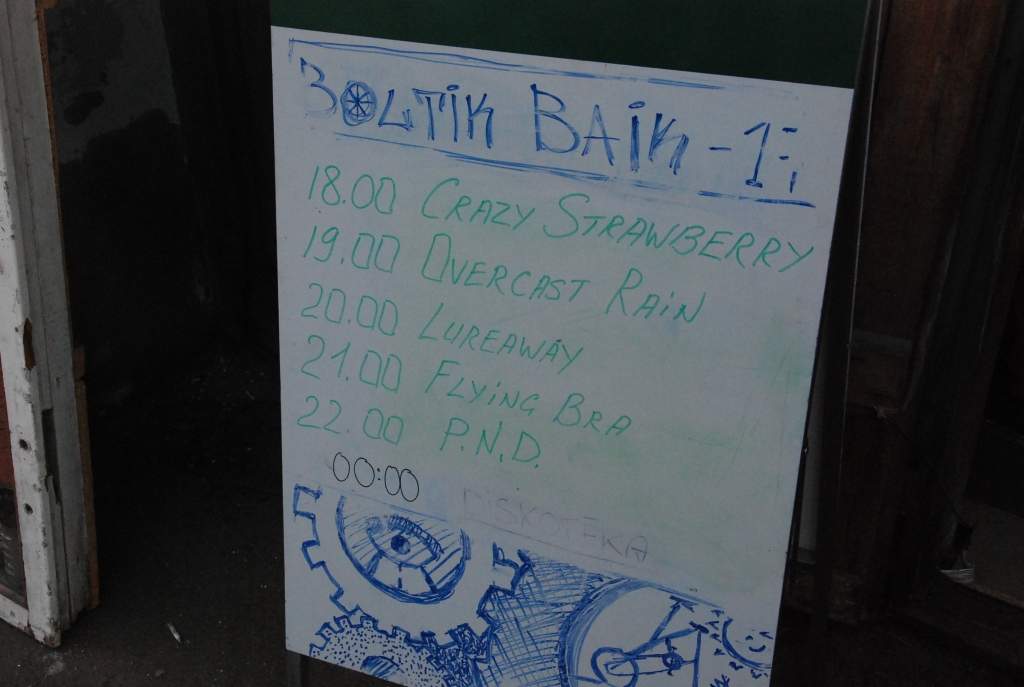 BOLTIK BAIK - 1;
18.00 CRAZY STRAWBERRY
19.00 OVERCAST RAIN
20.00 LUREAWAY
21.00 FLYING BRA
22.00 P.N.D.
00:00 DISKOTEKA